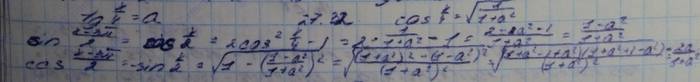 tg \frac{x}{4} = a 27.22 cos \frac{x}{4} = \sqrt{\frac{1}{1+a^2}}
sin \frac{x-3π}{2} = cos \frac{x}{2} = 2cos^2 \frac{x}{4} - 1 = 2 · \frac{1}{1+a^2} - 1 = \frac{2-a^2-1}{1+a^2} = \frac{1-a^2}{1+a^2}
cos \frac{x-3π}{2} = -sin \frac{x}{2} = \sqrt{1 - (\frac{1-a^2}{1+a^2})^2} = \sqrt{\frac{(1+a^2)^2 - (1-a^2)^2}{(1+a^2)^2}} = \sqrt{\frac{(1+a^2-1+a^2)(1+a^2+1-a^2)}{(1+a^2)^2}} = \frac{2a}{1+a^2}